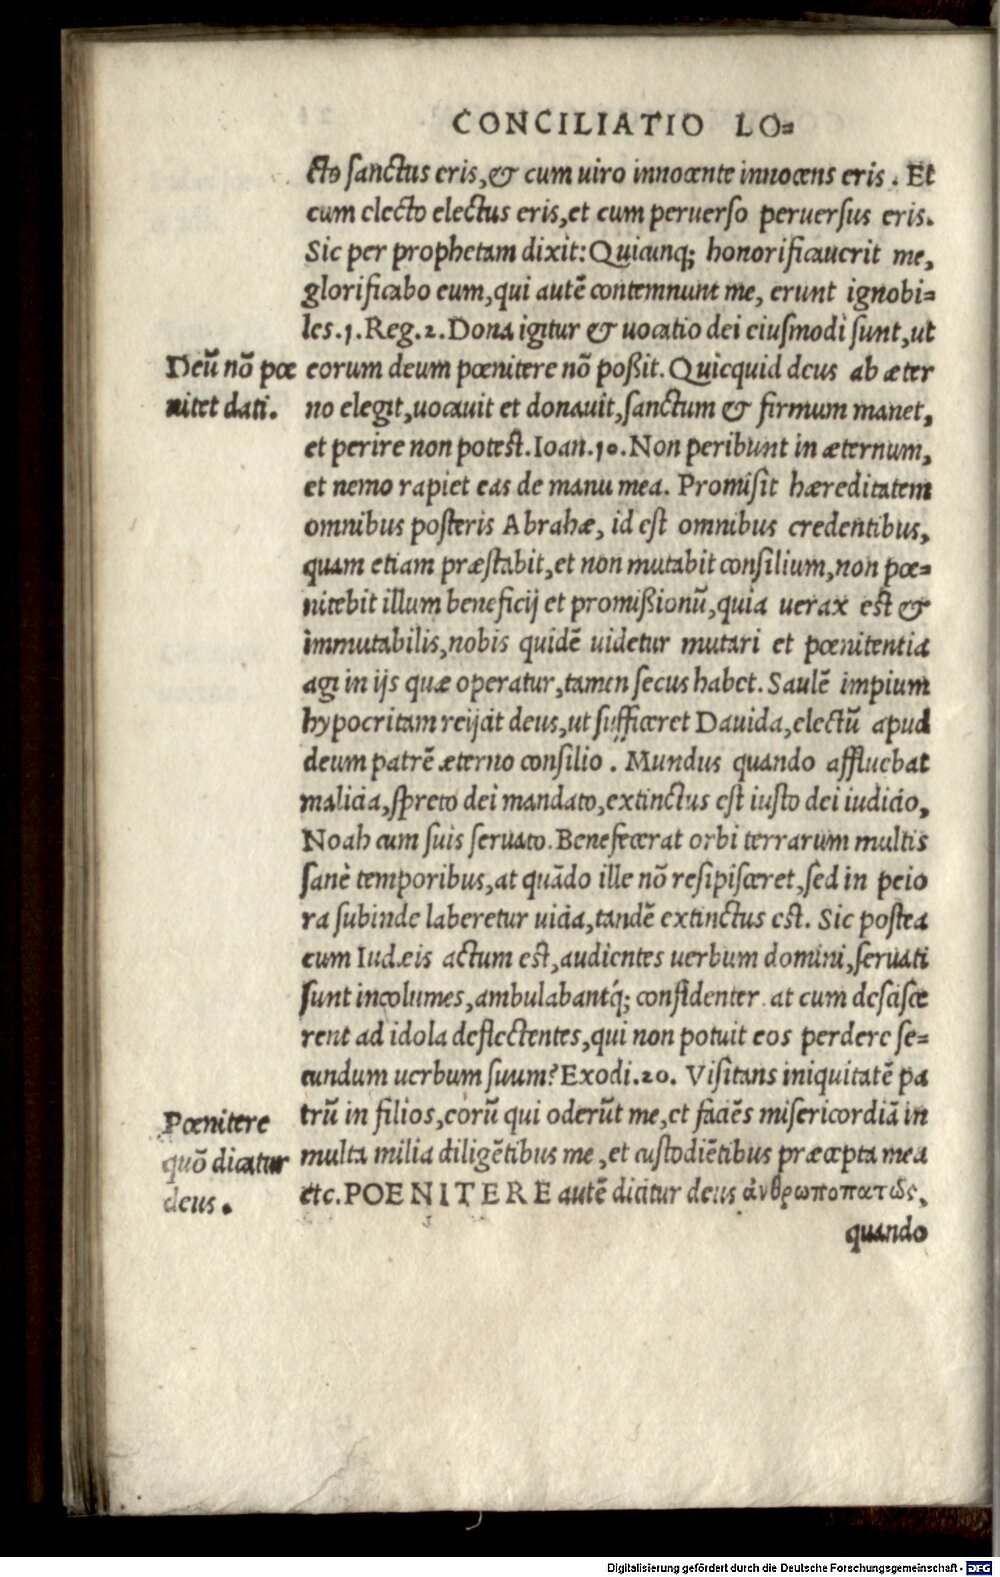 CONCILIATIO LO=
cto sanctus eris, & cum uiro innocente innocens eris. Et
cum electo electus eris, et cum peruerso peruersus eris.
Sic per prophetam dixit: Quicunq; honorificauerit me,
glorificabo eum, qui autẽ contemnunt me, erunt ignobi=
les. 1. Reg. 2. Dona igitur & uocatio dei eiusmodi sunt, ut
Deũ nõ pœ
nitet dati.
eorum deum pœnitere nõ poßit. Quicquid deus ab æter
no elegit, uocauit et donauit, sanctum & firmum manet,
et perire non potest. Ioan. 10. Non peribunt in æternum,
et nemo rapiet eas de manu mea. Promisit hæreditatem
omnibus posteris Abrahæ, id est omnibus credentibus,
quam etiam præstabit, et non mutabit consilium, non pœ=
nitebit illum beneficij et promißionũ, quia uerax est &
immutabilis, nobis quidẽ uidetur mutari et pœnitentia
agi in ijs quæ operatur, tamen secus habet. Saulẽ impium
hypocritam reijcit deus, ut sufficeret Dauida, electũ apud
deum patrẽ æterno consilio. Mundus quando affluebat
malicia, spreto dei mandato, extinctus est iusto dei iudicio,
Noah cum suis seruato. Benefecerat orbi terrarum multis
sanè temporibus, at quãdo ille nõ resipisceret, sed in peio
ra subinde laberetur uicia, tandẽ extinctus est. Sic postea
cum Iudæis actum est, audientes uerbum domini, seruati
sunt incolumes, ambulabantq́; confidenter. at cum desisce
rent ad idola deflectentes, qui non potuit eos perdere se=
cundum uerbum suum? Exodi. 20. Visitans iniquitatẽ pa
trũ in filios, eorũ qui oderũt me, et faciẽs misericordiã in
multa milia diligẽtibus me, et custodiẽtibus præcepta mea
etc. POENITERE autẽ dicitur deus ἀνθρωποπατῶς,
Pœnitere
quõ dicatur
deus.
quando
Digitalisierung gefördert durch die Deutsche Forschungsgemeinschaft - DFG